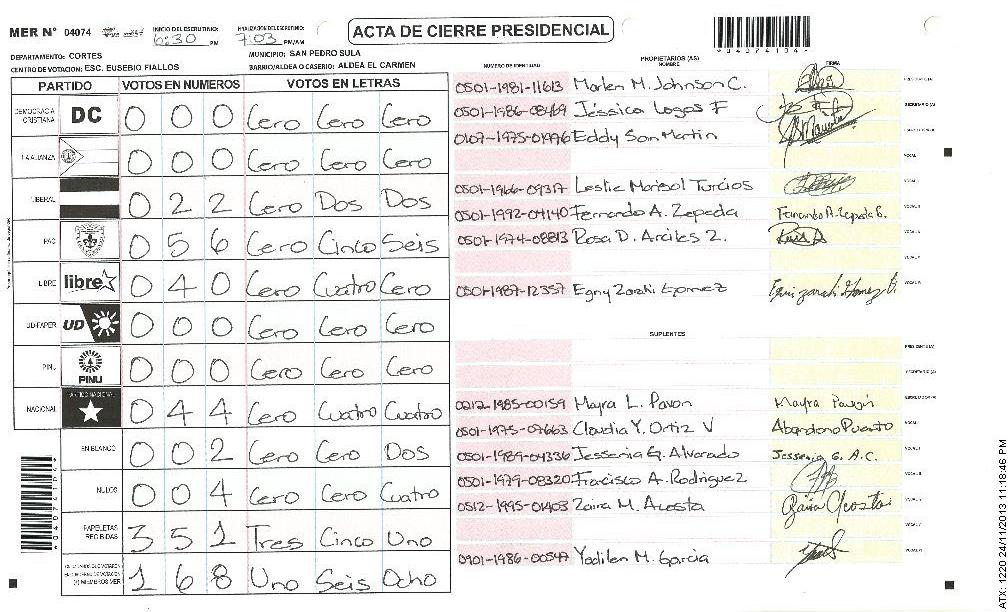 MER N° 04074
INICIO DEL ESCRUTINIO: 6:30 PM
FINALIZACION DEL ESCRUTINIO: 7:03 PM/AM
ACTA DE CIERRE PRESIDENCIAL
*04074104*
DEPARTAMENTO: CORTES
MUNICIPIO: SAN PEDRO SULA
CENTRO DE VOTACION: ESC. EUSEBIO FIALLOS
BARRIO/ALDEA O CASERIO: ALDEA EL CARMEN
PARTIDO VOTOS EN NUMEROS VOTOS EN LETRAS
DEMOCRACIA CRISTIANA DC 0 0 0 Cero Cero Cero
LA ALIANZA 0 0 0 Cero Cero Cero
LIBERAL 0 2 2 Cero Dos Dos
PAC 0 5 6 Cero Cinco Seis
LIBRE libre 0 4 0 Cero Cuatro Cero
UD-FAPER UD 0 0 0 Cero Cero Cero
PINU PINU 0 0 0 Cero Cero Cero
NACIONAL PARTIDO NACIONAL 0 4 4 Cero Cuatro Cuatro
EN BLANCO 0 0 2 Cero Cero Dos
NULOS 0 0 4 Cero Cero Cuatro
PAPELETAS RECIBIDAS 3 5 1 Tres Cinco Uno
1 6 8 Uno Seis Ocho
PROPIETARIOS (AS)
NUMERO DE IDENTIDAD NOMBRE FIRMA
0501-1981-11613 Marlen M. Johnson C. PRESIDENTE(A)
0501-1986-08469 Jéssica Lagos F SECRETARIO (A)
0107-1975-01996 Eddy San Martin ESCRUTADOR(A)
VOCAL I
0501-1966-09317 Leslie Marisol Turcios
0501-1992-04140 Fernando A. Zepeda Fernando A. Zepeda G.
0501-1974-08813 Rosa D. Arciles Z. Rosa
0501-1987-12357 Egny Zarahi Gomez
SUPLENTES
PRESIDENTE(A)
SECRETARIO (A)
0212-1985-00159 Mayra L. Pavon Mayra Pavón ESCRUTADOR(A)
0501-1975-07663 Claudia Y. Ortiz V Abandono Puesto
0501-1989-04336 Jessenia G. Alvarado Jessenia G. A.C.
0501-1979-08320 Francisco A. Rodriguez
0512-1995-01403 Zaira M. Acosta Zaira Acosta
0901-1986-00547 Yadilen M. Garcia
ATX: 1220 24/11/2013 11:18:46 PM